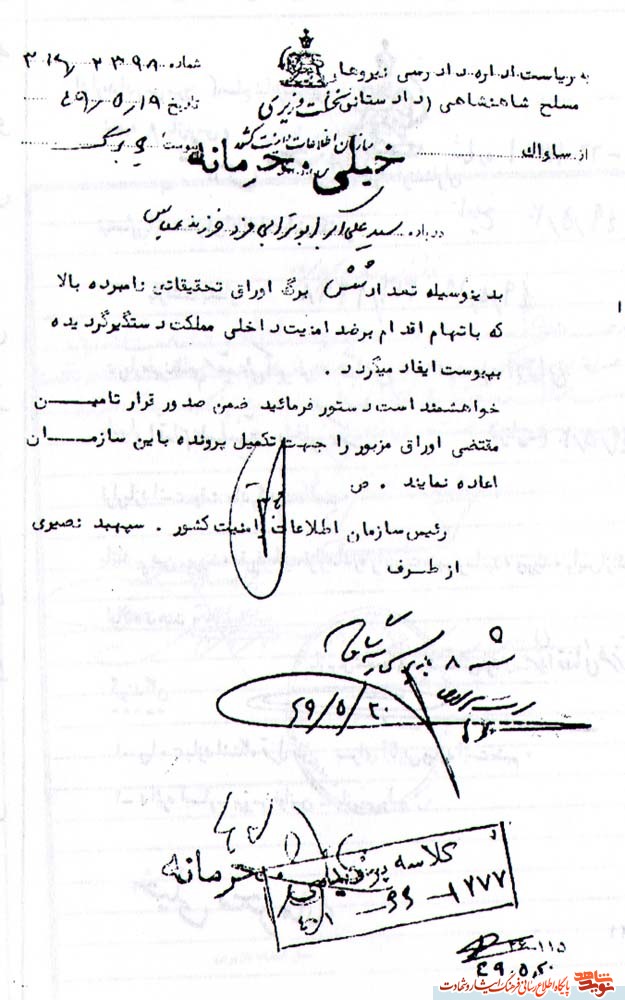 به ریاست اداره دادرسی نیروهای
مسلح شاهنشاهی (دادستانی
نخست وزیری
سازمان اطلاعات و امنیت کشور
شماره
تاریخ ۴۹/۵/۱۹
پیوست برگ
از ساواک
خیلی محرمانه
درباره سید علی اکبر ابوترابی فرد فرزند عباس
بدینوسیله تعداد شش برگ اوراق تحقیقاتی نامبرده بالا
که باتهام اقدام برضد امنیت داخلی مملکت دستگیر گردیده
بپیوست ایفاد میگردد .
خواهشمند است دستور فرمائید ضمن صدور قرار تامین
مقتضی اوراق مزبور را جهت تکمیل پرونده باین سازمان
اعاده نمایند . ص
رئیس سازمان اطلاعات و امنیت کشور . سپهبد نصیری
از طرف
شعبه ۸ بازپرسی
۴۹/۵/۲۰
محرمانه
کلاسه
۱۲۷۷
۲۴۰۱۱۵
۴۹.۵.۲۰
نوید شاهد
پایگاه اطلاع رسانی فرهنگ ایثار و شهادت